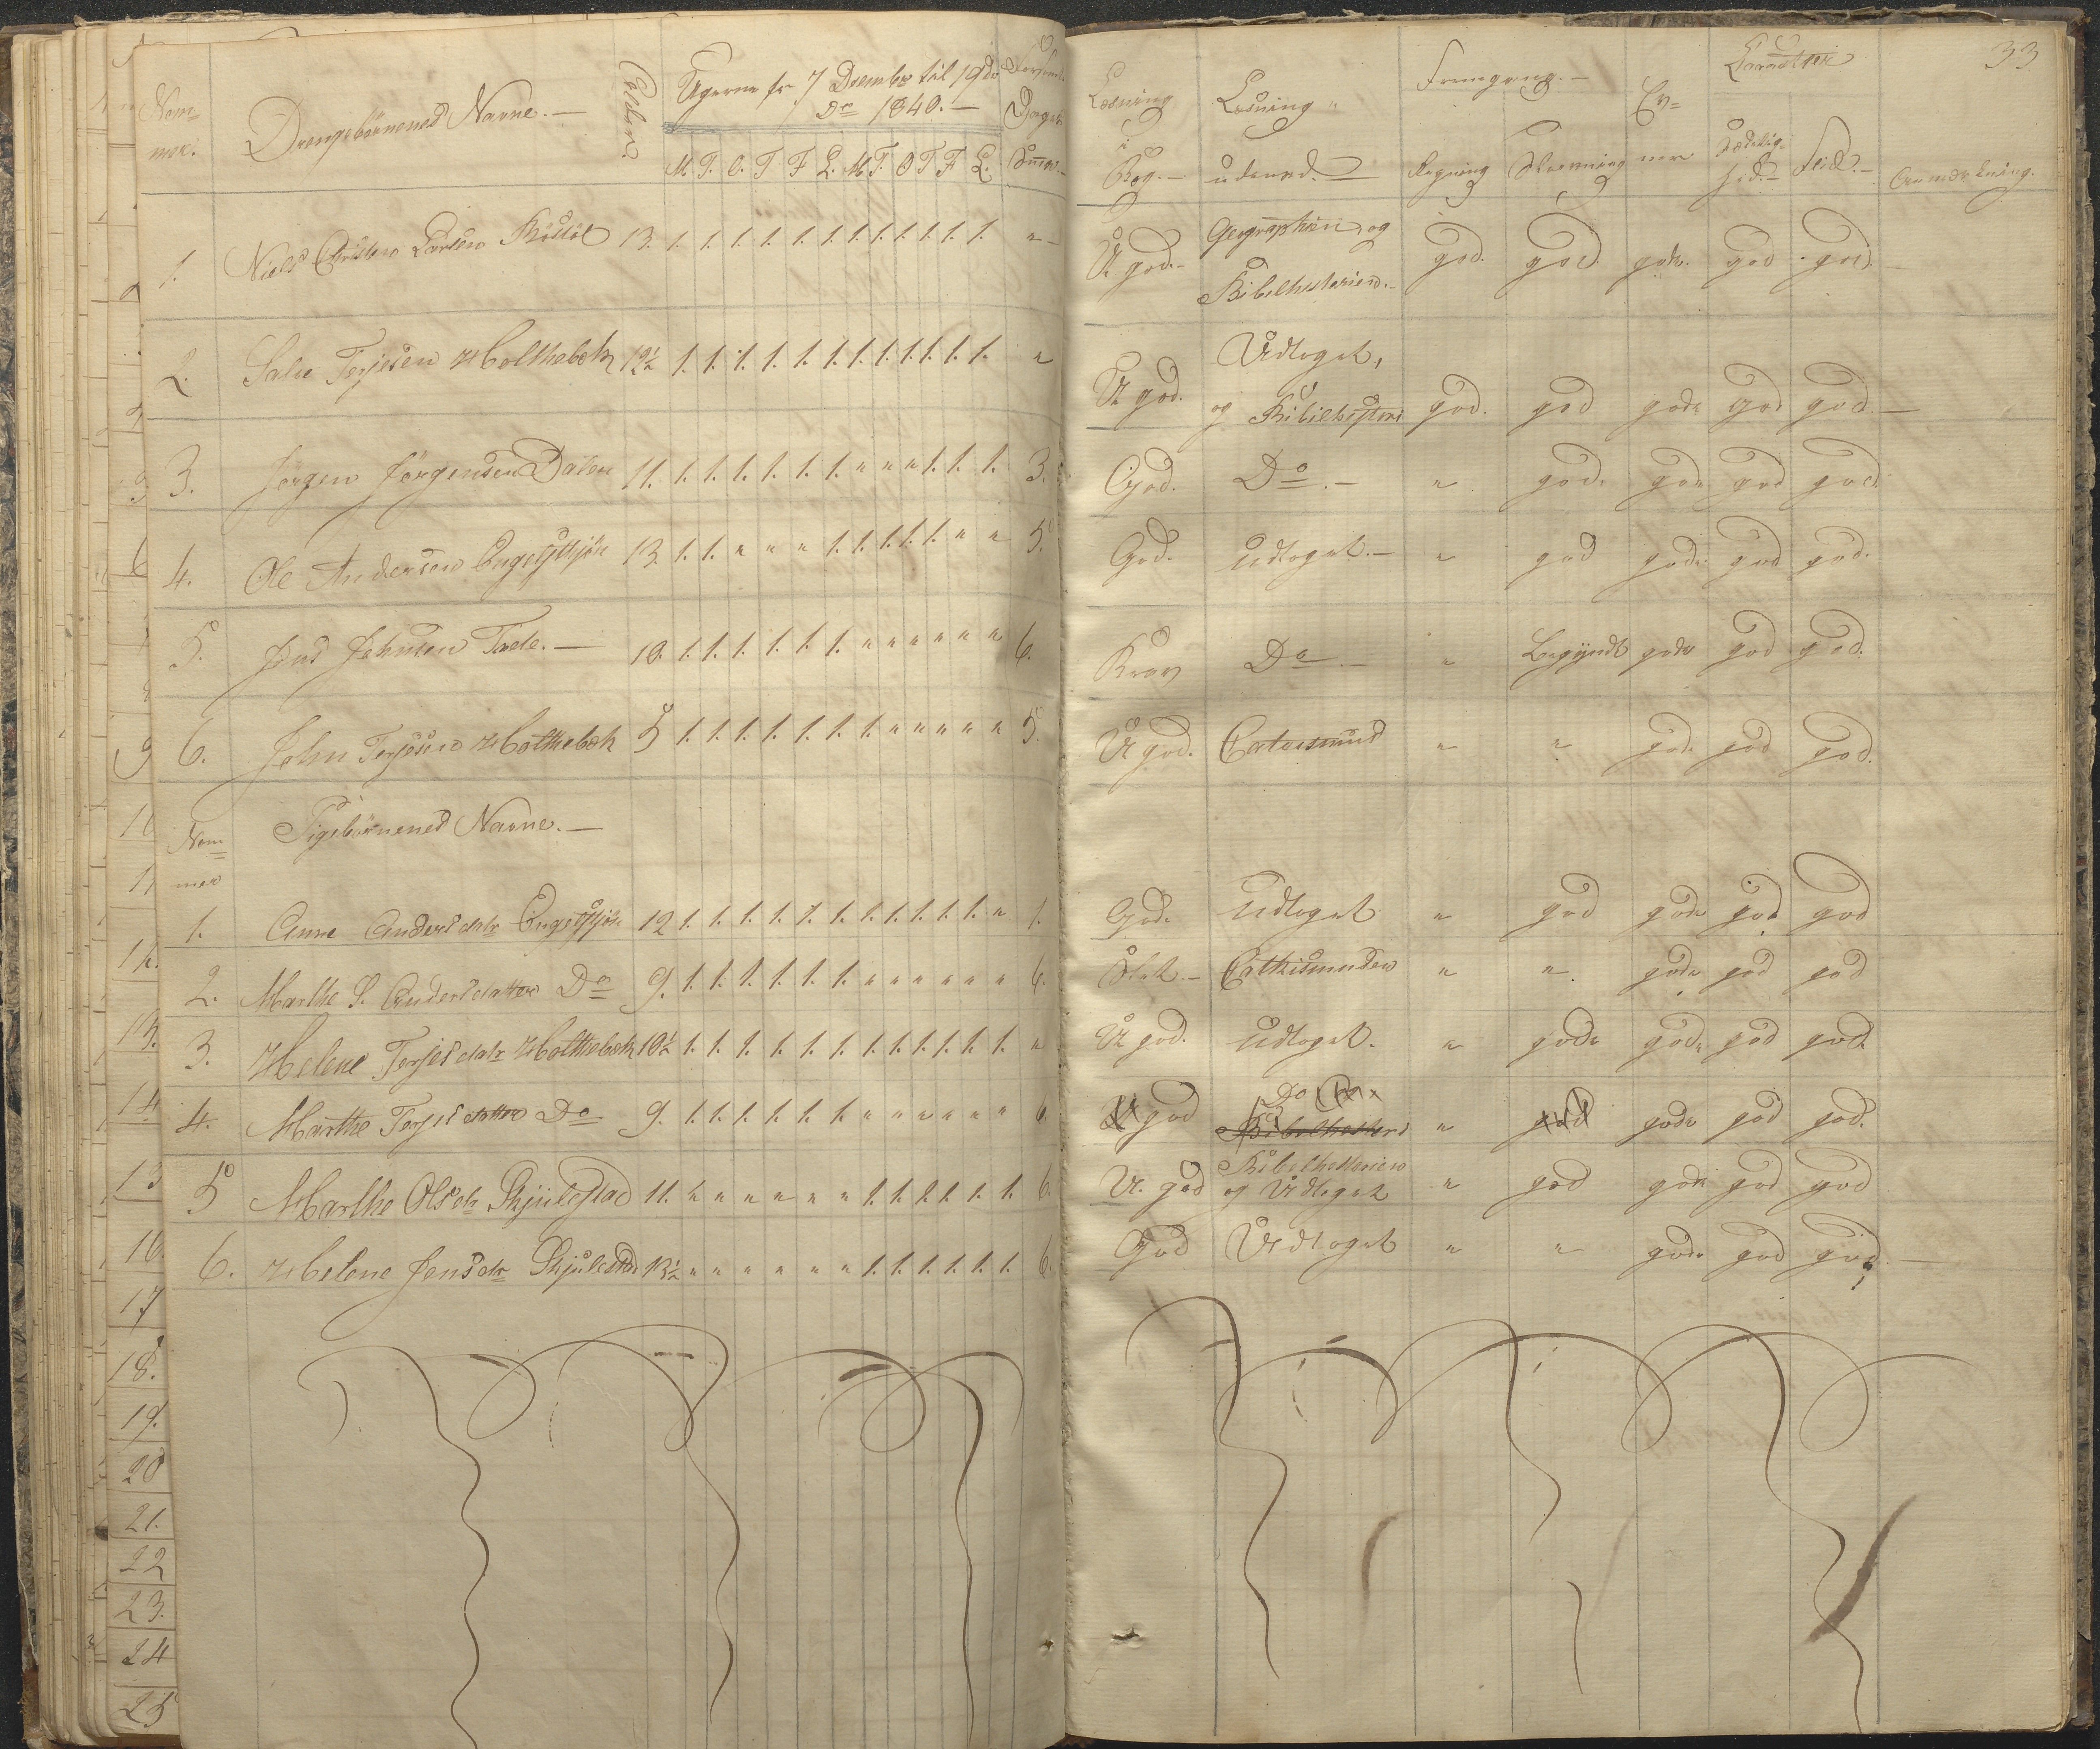 Nom=
mer.
Drengebörnenes Navne. —
Alder.
Ugerne fr 7 Decembr til 19de
Do 1840. —
Dage
Sum̄a.
M. T. O. T F L. M T. O T F L.
1. Niels Christen Larsen 13. 1. 1. 1. 1. 1. 1. 1. 1. 1. 1. 1. 1. "
2. Salve Terjesen Holthebek 12½ 1. 1. 1. 1. 1. 1. 1. 1. 1. 1. 1. 1. "
3. Jörgen Jörgensen Dalen 11. 1. 1. 1. 1. 1. 1. " " " 1. 1. 1. 3.
4. Ole Andersen 13. 1. 1. " " " 1. 1. 1. 1. 1. " " 5.
5. Jens Johnsen — 10. 1. 1. 1. 1. 1. 1. " " " " " " 6.
6. John Terjesen Holthebek 5 1. 1. 1. 1. 1. 1. 1. " " " " " 5.
Nom
mer
Pigebörnenes Navne. —
1. Anne Andersdatr 12 1. 1. 1. 1. 1. 1. 1. 1. 1. 1. 1. " 1.
2. Marthe S. Andersdatter Do 9. 1. 1. 1. 1. 1. 1. " " " " " " 6.
3. Helene Terjesdatr Holthebek 10½ 1. 1. 1. 1. 1. 1. 1. 1. 1. 1. 1. 1. "
4. Marthe Terjesdatter Do 9. 1. 1. 1. 1. 1. 1. " " " " " " 6
5 Marthe Olsdr Skjulestad 11. " " " " " " 1. 1. 1. 1. 1. 1. 6.
6. Helene Jensdr Skjulestad 13½ " " " " " " 1. 1. 1. 1. 1. 1. 6.
33
Læsning
i
Bog. —
Læsning
udenad. —
Fremgang. —
Regning
Skrivning
Ev=
ner
Caracter
Sædelig-
hed. —
Flid. —
Anmærkning.
M god. — Geographien, og
Bibelhistorien. — god. god. gode. god god.
M god. Udtoget,
og Bibelhistori god. god gode god god. —
God. Do. — " god. gode god god.
God. Udtoget. — " god gode god god.
Do. — " Begyndt gode god god.
M god. " " gode god god.
God. Udtoget " god gode god god
Slet. — " " gode god god
M god. Udtoget. " gode gode god god.
M god Do
Bibelhistori " god gode god god.
M. god Bibelhistorien
og Udtoget " god gode god god
God Udtoget " " gode god god. —
9
11
12.
13.
14
15
16
17
18.
19.
20
21.
22
23.
24
25